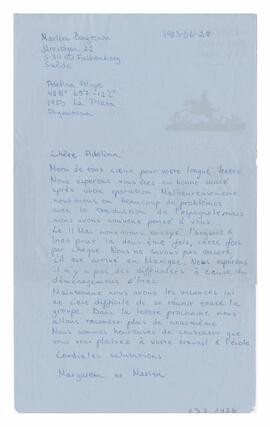 Marita Bengtsson
1983-06-28
S-311 00 Falkenberg
Suède
Adelina Alaye
48 Nº 657-12ºC
1900 La Plata
Argentina
Chère Adelina
Merci de tout cœur pour votre longue lettre.
Nous esperons vous êtes en bonne santé
après votre operation. Malheureusement
nous avons eu beaucoup de problèmes
avec la traduction de l'espagnole mais
nous avons souvent pensé à vous.
Le 11 Mai nous avons envoyé l'argent à
Ines pour la deuxième fois, cette fois
par chèque. Nous ne savons pas encore
s'il est arrivé en Mexique. Nous esperons
il n'y a pas des difficultés à cause du
déménagement d'Ines.
Maintenant nous avons les vacances ici
et c'est difficile de se réunir toute la
groupe. Dans la lettre prochaine nous
allons raconter plus de nous-même
Nous sommes heureuses de constater que
vous vous plaisez à votre travail à l'école
Cordiales salutations
Margareta et Marita